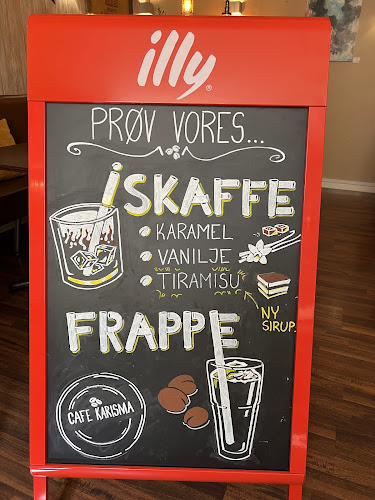 illy®
PRØV VORES...
ISKAFFE
KARAMEL
VANILJE
TIRAMISU
NY
SIRUP.
FRAPPE
CAFE KARISMA